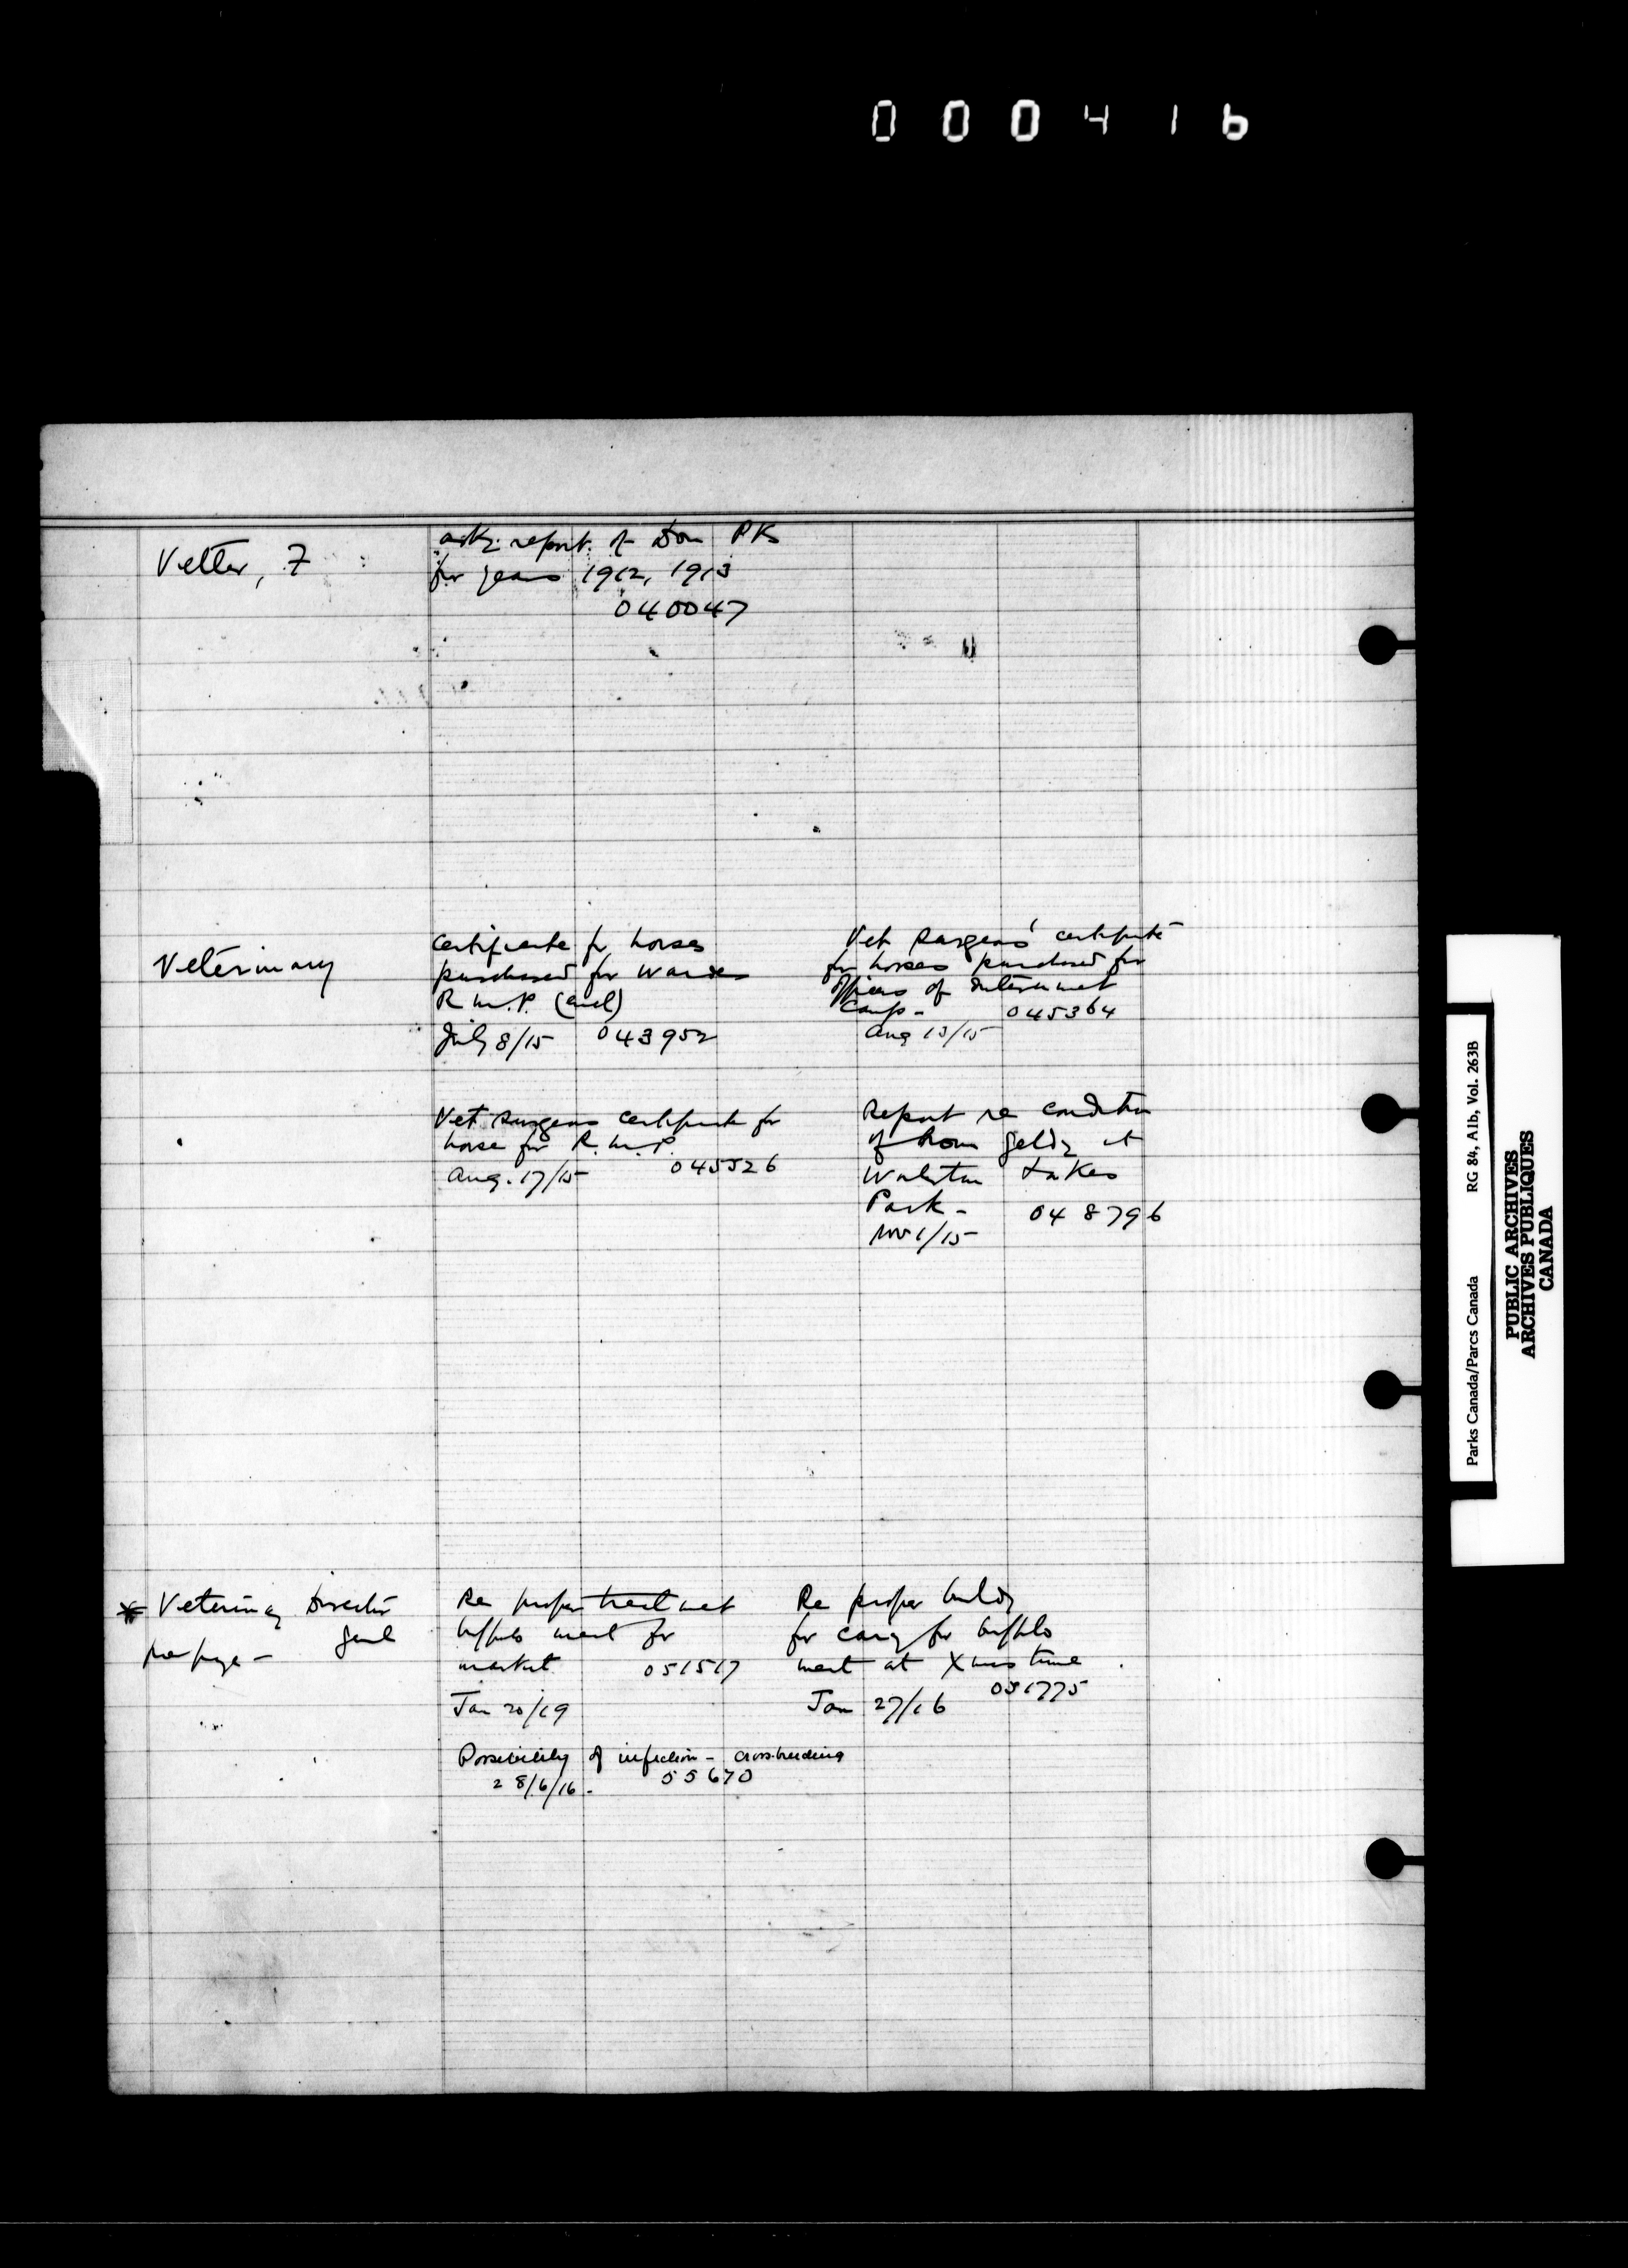 000416
Vetter, F
ask'g report of Dom PKs
for years 1912, 1913
040047
Veterinary
Certificate for horses
purchased for Wardens
R.M.P. (encl)
July 8/15 043952
Vet Surgeons' certificate
for horses purchased for
Officers of Internment
Camp - 045364
Aug 13/15
Vet Surgeons Certificate for
horse for R.M.P.
Aug. 17/15 045526
Report re condition
of brown geldg at
Waterton Lakes
Park -
Nov 1/15 048796
* Veterinary Director
Genl
Re proper treatment
buffalo meat for
market 051517
Jan 20/19
Re proper buildg
for carg for buffalo
meat at Xmas time
051775
Jan 27/16
Possibility of infection - crossbreeding
28/6/16 - 55670
Parks Canada/Parcs Canada RG 84, A1b, Vol. 263B
PUBLIC ARCHIVES
ARCHIVES PUBLIQUES
CANADA